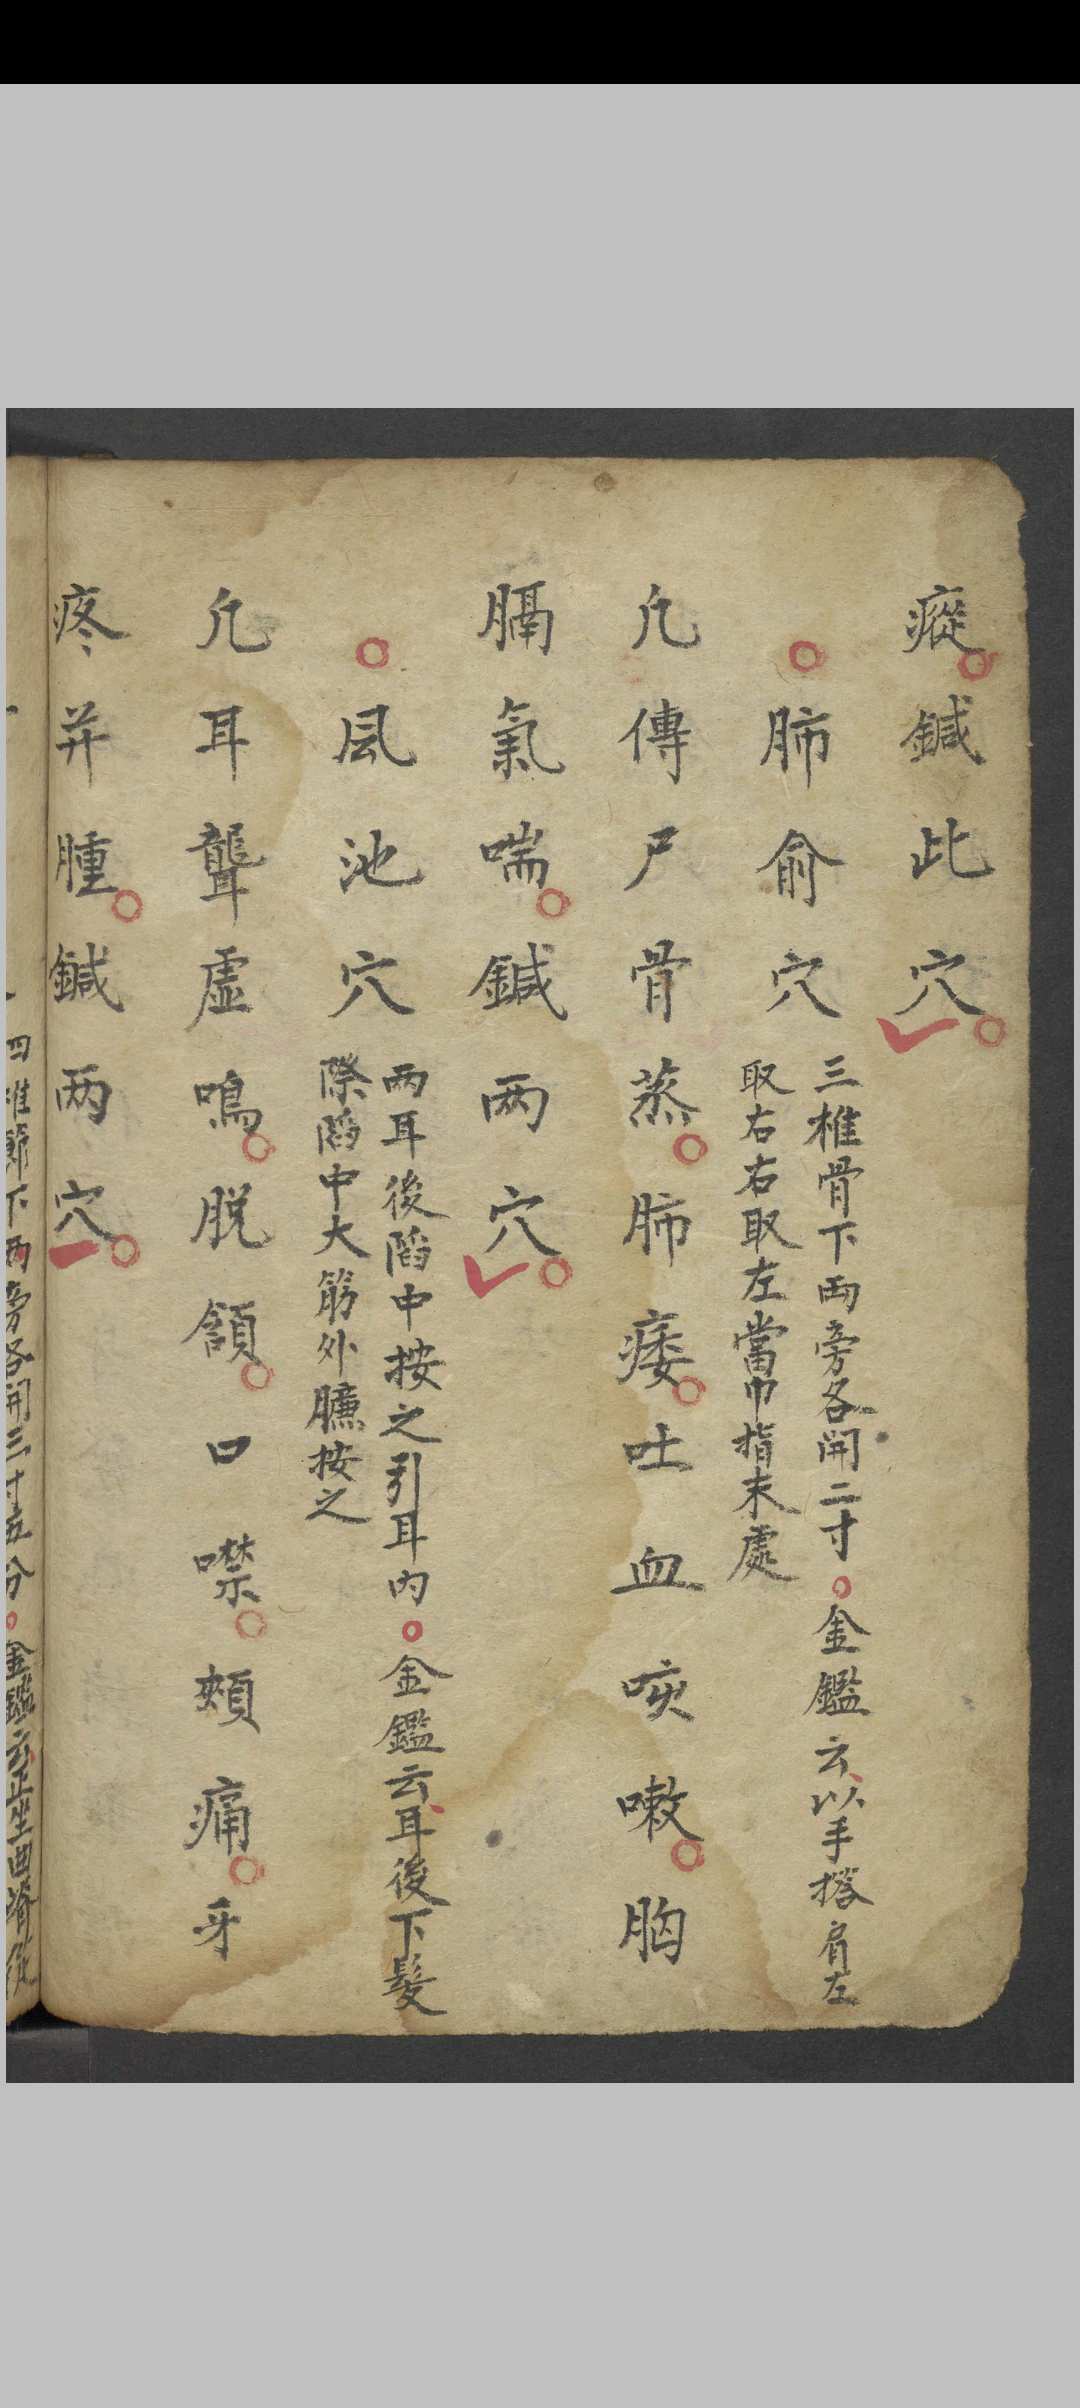 瘲鍼此穴
肺俞穴
三椎骨下両旁各開二寸金鑑云以手搭肩左
取右右取左當巾指末處
凢傳尸骨蒸肺痿吐血咳嗽胸
膈氣喘鍼两穴
風池穴
两耳後陷中按之引耳內金鑑云耳後下髮
際陷中大筋外臁按之
凢耳聾虛鳴脱頷口噤頰痛牙
疼并腫鍼两穴
四椎節下两旁各開三寸五分金鑑云正坐曲脊從